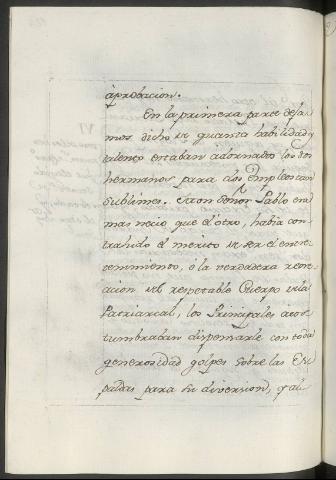 aprobacion.
En la primera parte deja-
mos dicho de quanta habilidad y
talento estaban adornados los dos
hermanos para dos Empleos tan
sublimes. Pablo era
mas necio que el otro, habia con-
trahido el merito de ser el entre-
tenimiento, ó la verdadera recre-
acion del respetable Cuerpo de la
Patriarcal, los Principales acos-
tumbraban dispensarle con toda
generosidad golpes sobre las Es-
paldas para su diversion, y al